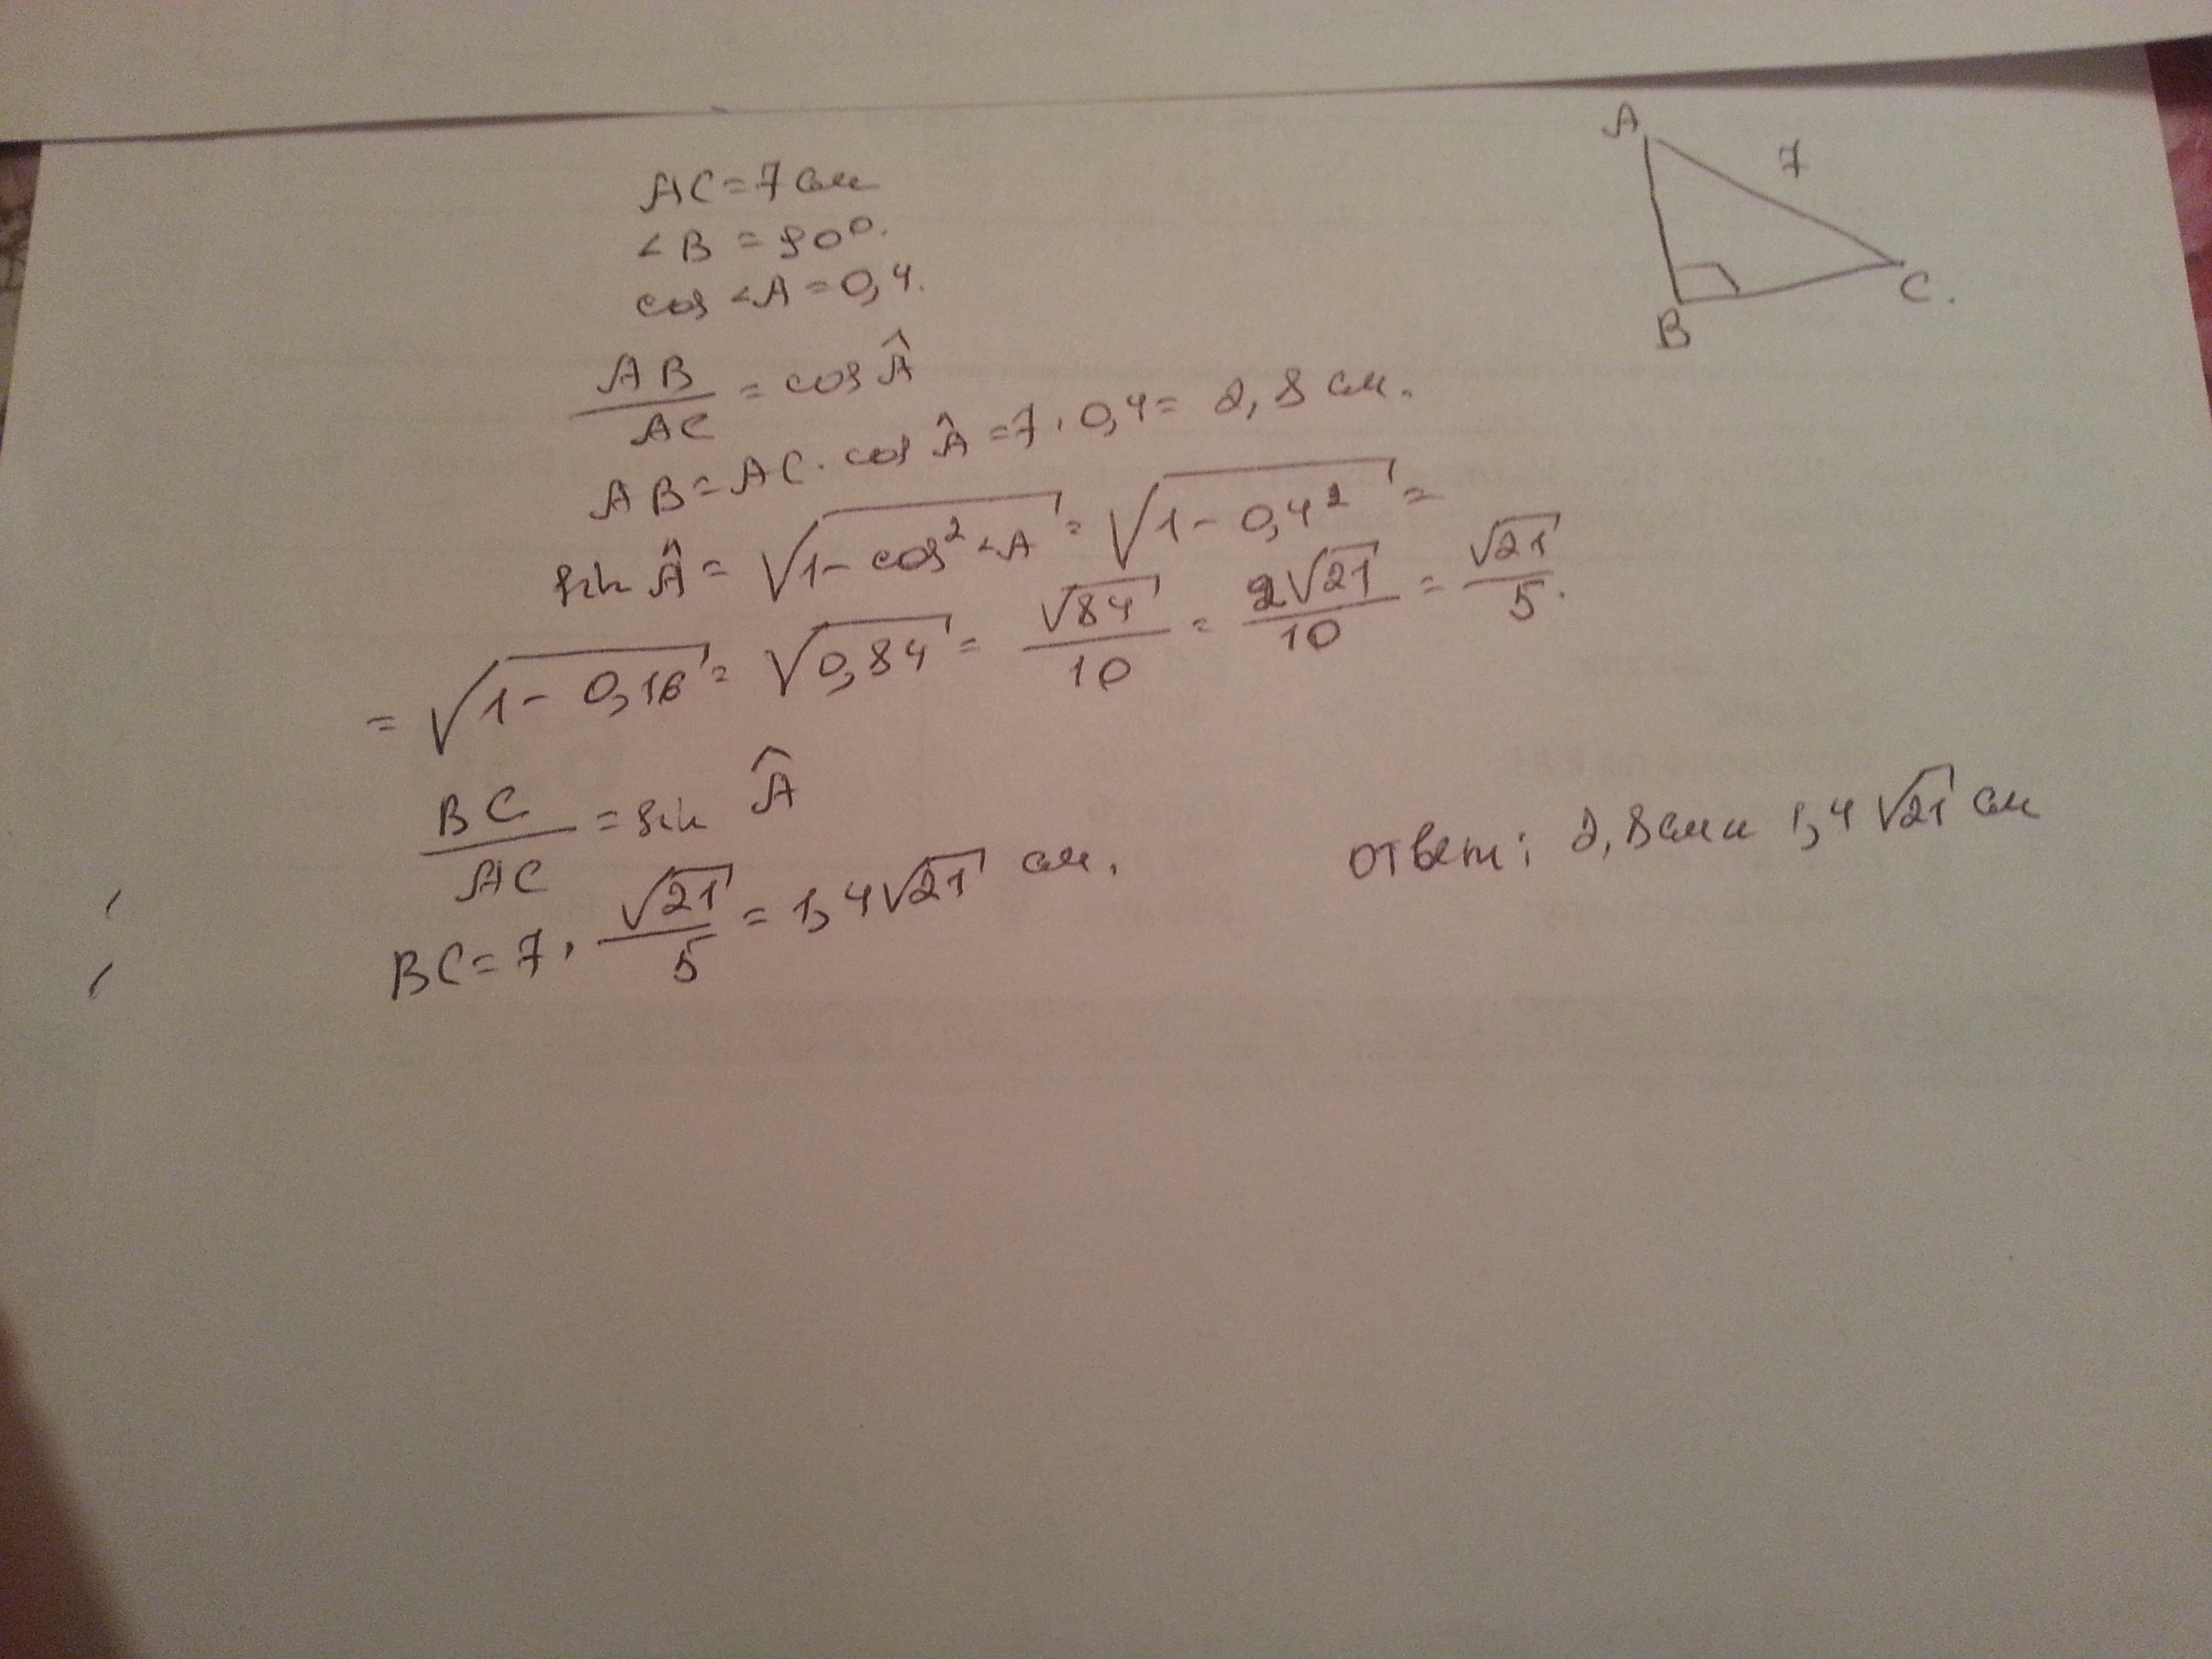 A
7
C.
B
AC=7 см
∠B = 90°.
cos ∠A = 0,4.
AB/AC = cos Â
AB = AC · cos Â = 7 · 0,4 = 2,8 см.
sin Â = √(1 - cos² ∠A) = √(1 - 0,4²) =
= √(1 - 0,16) = √0,84 = √84/10 = 2√21/10 = √21/5.
BC/AC = sin Â
BC = 7 · √21/5 = 1,4√21 см.
ответ: 2,8 см и 1,4√21 см